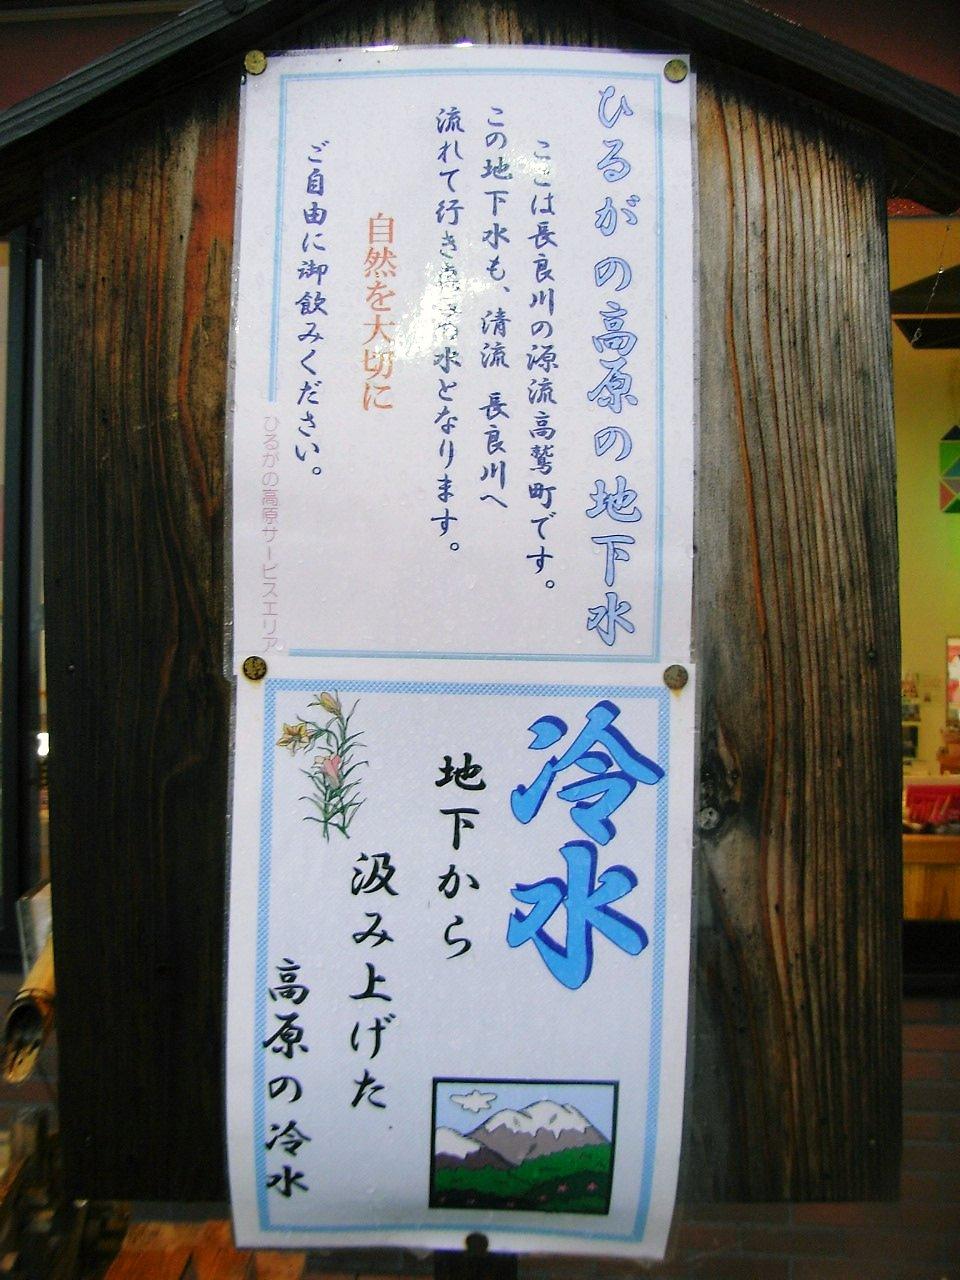 ひるがの高原の地下水
ここは長良川の源流高鷲町です。
この地下水も、清流 長良川へ
流れて行き 水となります。
自然を大切に
ご自由に御飲みください。
ひるがの高原サービスエリア
冷水
地下から
汲み上げた
高原の冷水